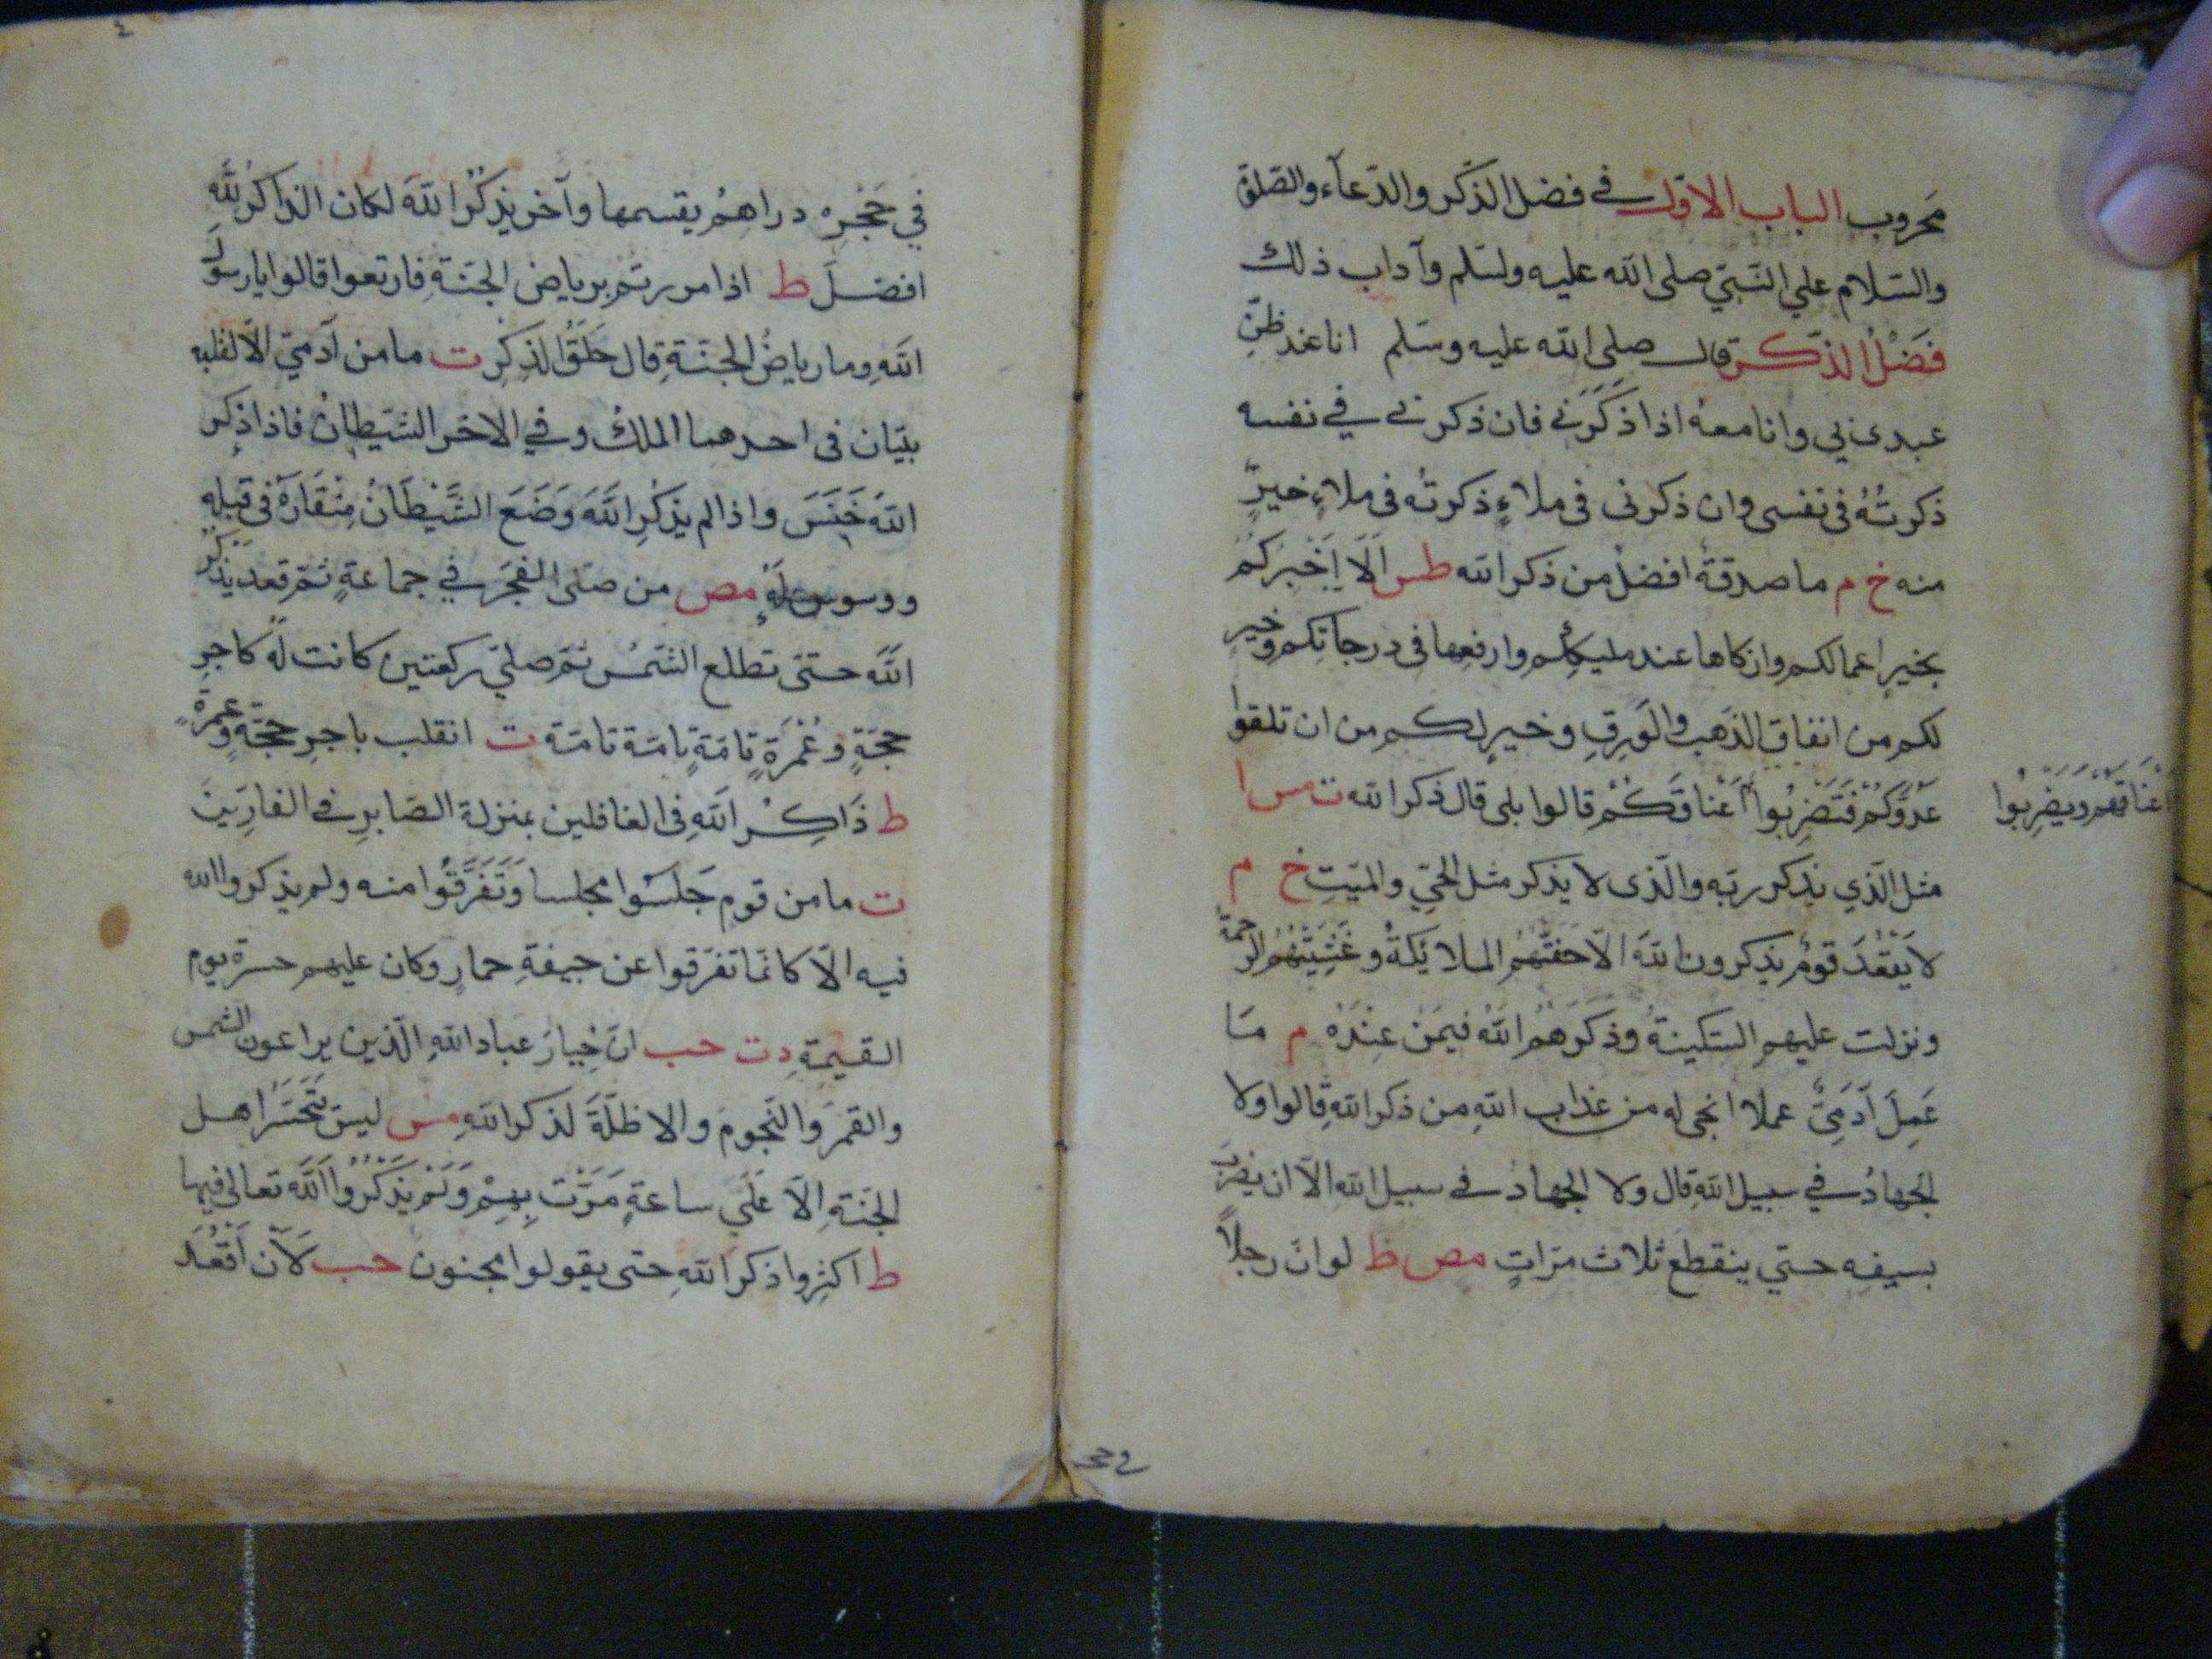 محروب الباب الاول في فضل الذكر والدعآء والصلوة
والسّلام علي النّبيّ صلى الله عليه وسلم وآداب ذلك
فَضْلُ الذّكر قال صلى الله عليه وسلم انا عند ظنّ
عبدى بي وانا معه اذا ذَكَرَنى فان ذكرنى في نفسه
ذكرتُهُ فى نفسى وان ذكرنى فى ملاءٍ ذكرتُه فى ملاءٍ خيرٍ
منه خ م ما صدقةٌ افضلُ من ذكر الله طس اَلَا اُخْبِرُكُمْ
بخيرِ اعمالكم وازكاها عند مليكِكُم وارفعِها فى درجاتِكم وخيرٍ
لكم من انفاقِ الذَهبِ والوَرِقِ وخيرٍ لكم من ان تلقوا
عَدُوَّكُمْ فَتَضْرِبُوا اَعْناقَكُمْ قالوا بلى قال ذكر الله ت مس ا
عْنَاقَهُمْ وَيَضْرِبُوا
مثل الّذي يذكر ربّه والّذى لا يذكر مثل الحيِّ والميّتِ خ م
لا يَقْعُدَ قومٌ يذكرون اللهَ الاّ حَفَّتْهُم الملائكةُ وغَشِيَتْهُمُ الرحمةُ
ونزلت عليهم السّكينةُ وذَكَرَهُمُ اللهُ فيمَنْ عِنْدَهُ م مَا
عَمِلَ آدَمِيٌّ عملا انجى له من عذاب اللهِ من ذكر اللهِ قالوا ولا
الجهادُ في سبيل اللهِ قال ولا الجهادُ في سبيل الله الاّ ان يضربَ
بسيفِه حتي ينقطع ثلاث مرّاتٍ مص ط لو انّ رجلاً
في حَجْرِه دراهِمُ يقسمها وآخر يذكُرُ اللهَ لكان الذاكرُ للّه
افضلَ ط اذا مررتم برياض الجنّةِ فارتعوا قالوا يارسولَ
اللهِ وما رياضُ الجنّةِ قال حَلَقُ الذِكِرِ ت ما من آدَميّ الاّ لقلبه
بيتان فى احدهما الملكُ وفي الاخر الشيطانُ فاذا ذكر
اللهَ خَنَسَ واذا لم يذكرِ اللهَ وَضَعَ الشَّيْطَانُ مِنْقَارَهُ فى قلبه
ووسوس لَهُ مص من صلى الفجرَ في جماعةٍ ثم قعد يذكر
اللهَ حتى تطلع الشمسُ ثم صلي ركعتين كانت له كاجرِ
حجّةٍ وعُمْرَةٍ تامّةٍ تامّة تامّة ت انقلب باجرِ حجّةٍ وعمرةٍ
ط ذَاكِرُ اللهِ فى الغافلين بمنزلة الصّابرِ في الفارّينَ
ت ما من قوم جَلَسُوا مجلسا وَتَفَرَّقُوا منه ولم يذكروا الله
فيه الاّ كانما تفرّقوا عن جيفةِ حمارٍ وكان عليهم حسرة يوم
القيمةِ د ت حب انّ خِيارَ عباد اللهِ الّذين يراعون الشمس
والقمرَ والنّجومَ والاظلّةَ لذكر اللهِ مس ليسَ يَتَحَسّرُ اهل
الجنّةِ الاّ عَلَي ساعةٍ مَرَّتْ بِهِمْ وَلَمْ يَذْكُرُوا اللهَ تعالى فيها
ط اكثِروا ذكر اللهِ حتى يقولوا مجنون حب لَاَنْ اَقْعُدَ